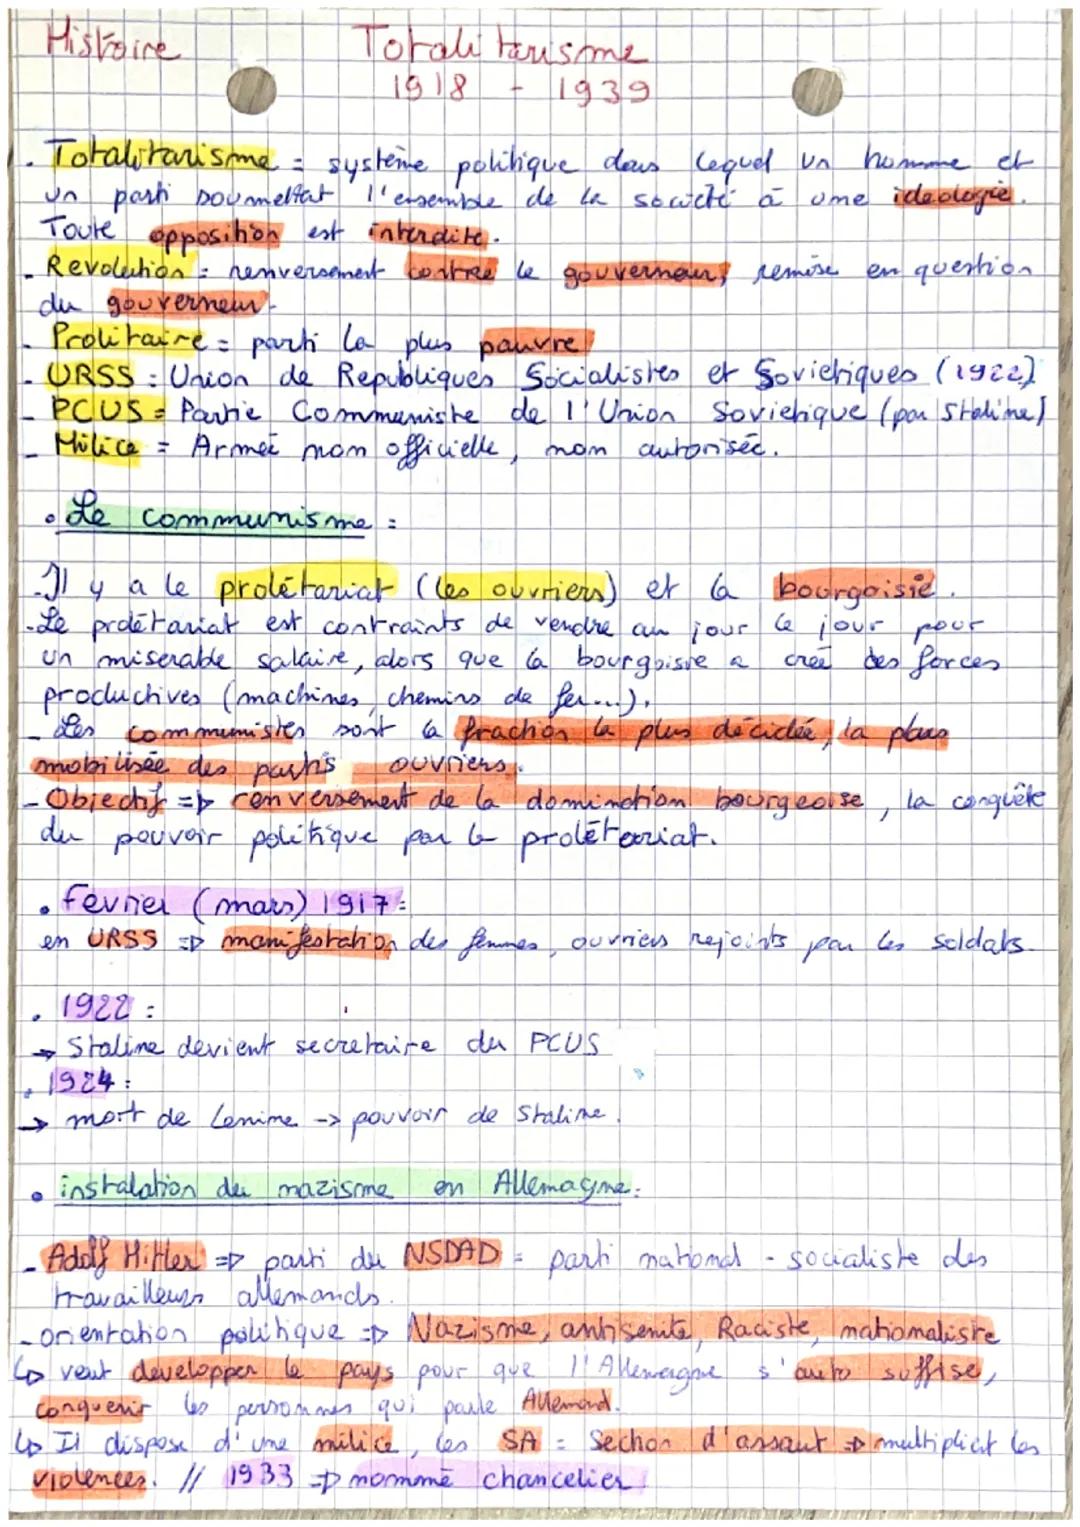 Histoire Totalitarisme
1918 - 1939
. Totalitarisme = système politique dans lequel un homme et
un parti soumettat l'ensemble de la société à une ideologie.
Toute opposition est interdite.
- Revolution : renversement contree le gouverneur, remise en question
du gouverneur.
- Prolitaire = parti la plus pauvre
- URSS : Union de Republiques Socialistes et Sovietiques (1922)
- PCUS = Partie Communiste de l'Union Sovietique (par Staline)
- Milice = Armée non officielle, non autorisée.
• Le communisme :
- Il y a le prolétariat (les ouvriers) et la bourgoisie.
- Le prolétariat est contraints de vendre au jour le jour pour
un miserable salaire, alors que la bourgoisie a creé des forces
productives (machines, chemins de fer...).
- Les communistes sont la fraction la plus décidée, la plus
mobilisée des partis ouvriers.
- Objectif => renversement de la domination bourgeoise, la conquête
du pouvoir politique par le prolétariat.
• Fevrier (mars) 1917 :
en URSS => manifestation des femmes, ouvriers rejoints par les soldats.
• 1922 :
→ Staline devient secretaire du PCUS
• 1924 :
→ mort de Lenine -> pouvoir de Staline.
• instalation du nazisme en Allemagne :
- Adolf Hitler => parti du NSDAD = parti national - socialiste des
travailleurs allemands.
- orientation politique => Nazisme, antisemite, Raciste, nationaliste
↳ veut developper le pays pour que l'Allemagne s'auto suffise,
conquerir les personnes qui parle Allemand.
↳ Il dispose d'une milice, les SA = Section d'assaut => multiplient les
violences. // 1933 => nommé chancelier